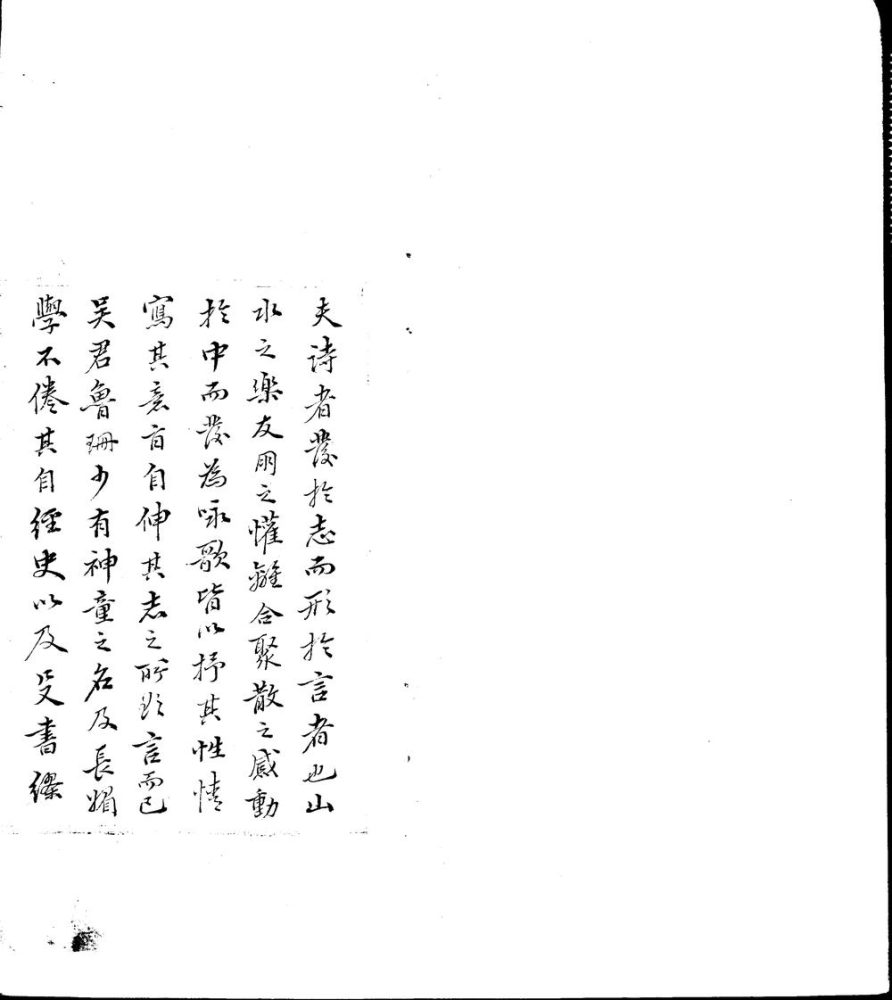 夫詩者發於志而形於言者也山
水之樂友朋之懽離合聚散之感動
於中而發為咏歌皆以抒其性情
寫其意旨自伸其志之所欲言而已
吴君魯珊少有神童之名及長媚
學不倦其自經史以及殳書繆